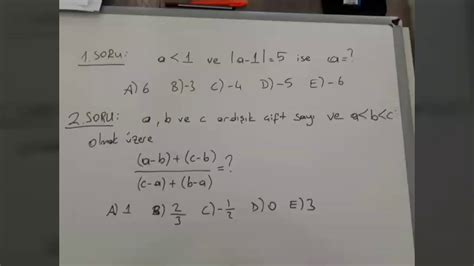 1. SORU: a<1 ve |a-1|=5 ise a=?
A) 6 B)-3 C)-4 D)-5 E)-6
2. SORU: a, b ve c ardışık çift sayı ve a<b<c
olmak üzere
(a-b)+(c-b)
(c-a)+(b-a) =?
A) 1 B) 2/3 C)-1/2 D) 0 E) 3